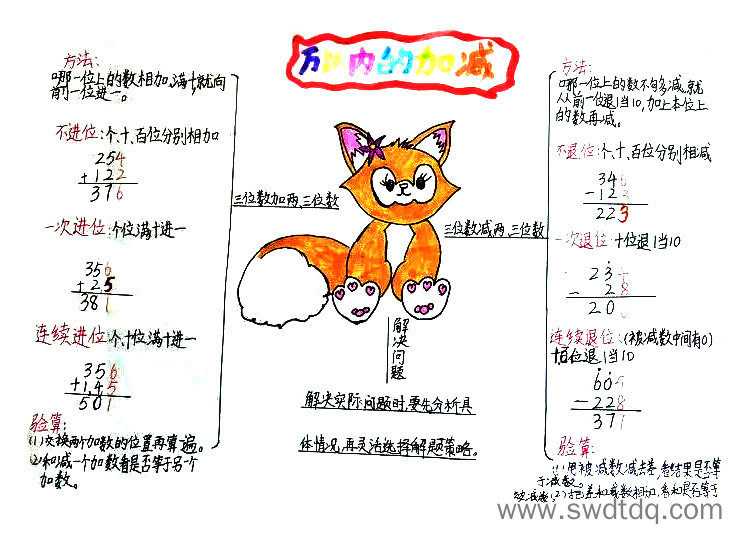 万以内的加减
方法:
哪一位上的数相加,满十,就向
前一位进一。
不进位:个、十、百位分别相加
254
+122
376
一次进位:个位满十进一
356
+25
381
连续进位:个、十位满十进一
356
+145
501
验算:
(1)交换两个加数的位置再算一遍。
(2)和减一个加数看是否等于另一个
加数。
三位数加两、三位数
三位数减两、三位数
解决问题
解决实际问题时,要先分析具
体情况,再灵活选择解题策略。
方法:
哪一位上的数不够减,就
从前一位退1当10,加上本位上
的数再减。
不退位:个、十、百位分别相减
346
-12
223
一次退位:十位退1当10
23
-28
20
连续退位:(被减数中间有0)
十百位退1当10
60
-228
371
验算:
(1)用被减数减去差,看结果是否等
于减数。
(2)把差和减数相加,看和是否等于
被减数
www.swdtdq.com